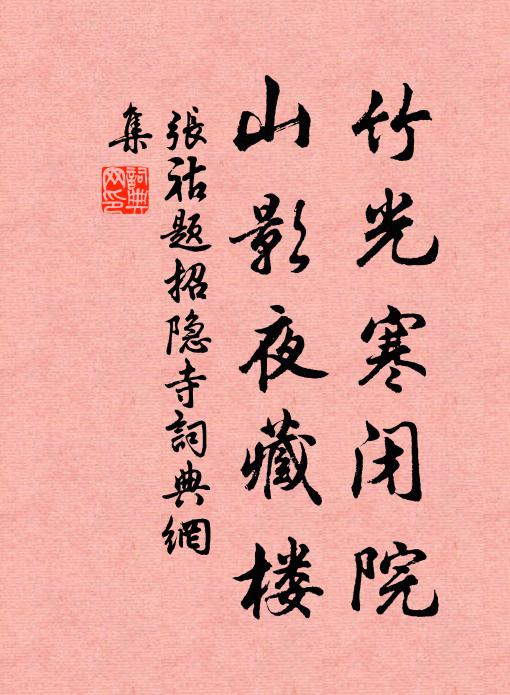 竹光寒闭院
山影夜藏楼
張祜题招隐寺詞典網
集
詞典
网印